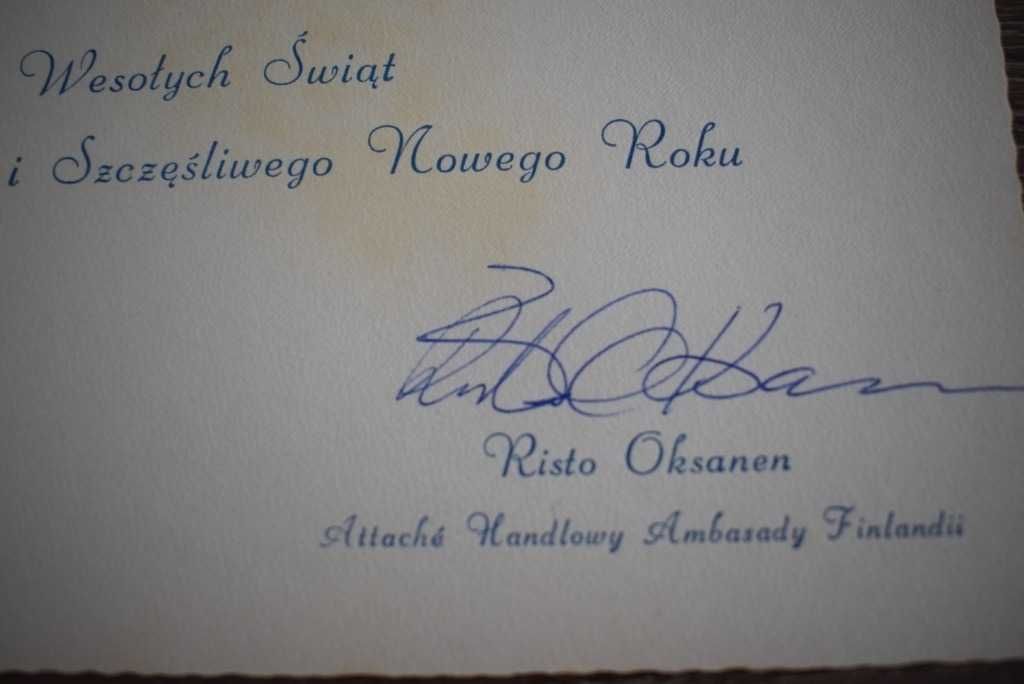 Wesołych Świąt
i Szczęśliwego Nowego Roku
Risto Oksanen
Attaché Handlowy Ambasady Finlandii